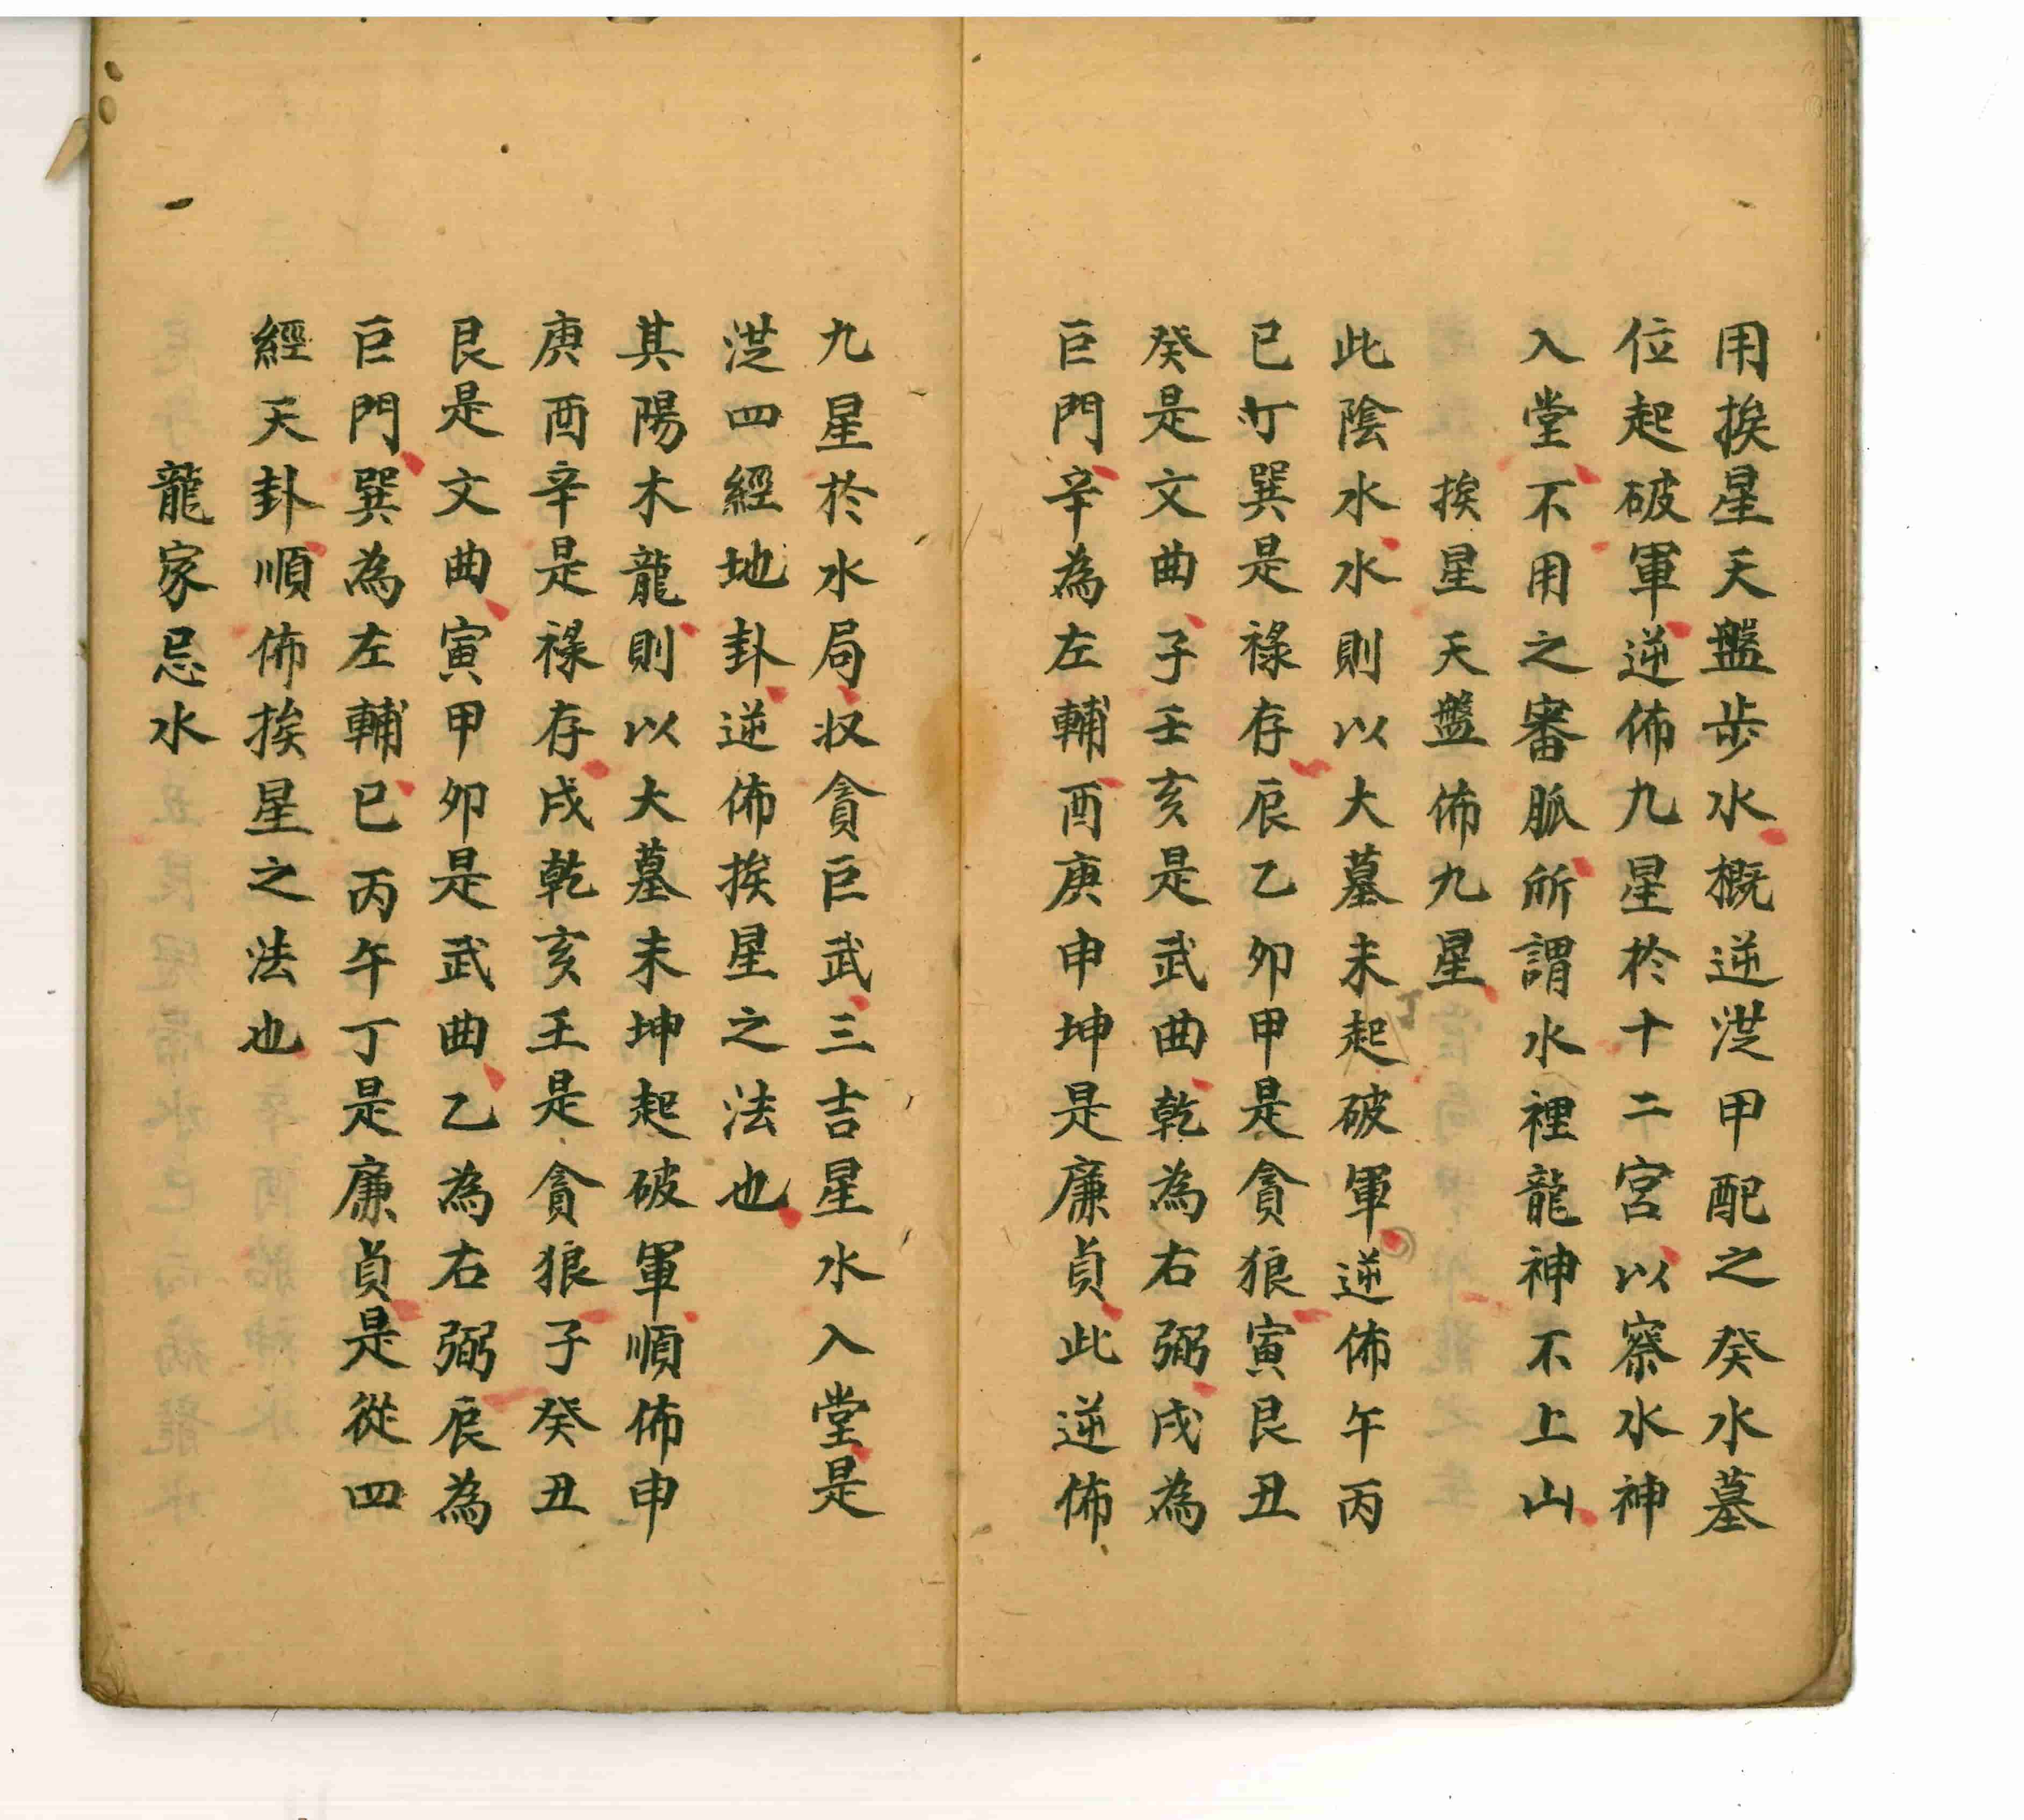 用挨星天盤步水概逆从甲配之癸水墓
位起破軍逆佈九星於十二宮以察水神
入堂不用之審脈所謂水裡龍神不上山
挨星天盤佈九星
此陰水水則以大墓未起破軍逆佈午丙
巳丁巽是祿存辰乙卯甲是貪狼寅艮丑
癸是文曲子壬亥是武曲乾為右弼戌為
巨門辛為左輔酉庚申坤是廉貞此逆佈
九星於水局収貪巨武三吉星水入堂是
從四經地卦逆佈挨星之法也
其陽木龍則以大墓未坤起破軍順佈申
庚酉辛是祿存戌乾亥壬是貪狼子癸丑
艮是文曲寅甲卯是武曲乙為右弼辰為
巨門巽為左輔巳丙午丁是廉貞是從四
經天卦順佈挨星之法也
龍家忌水